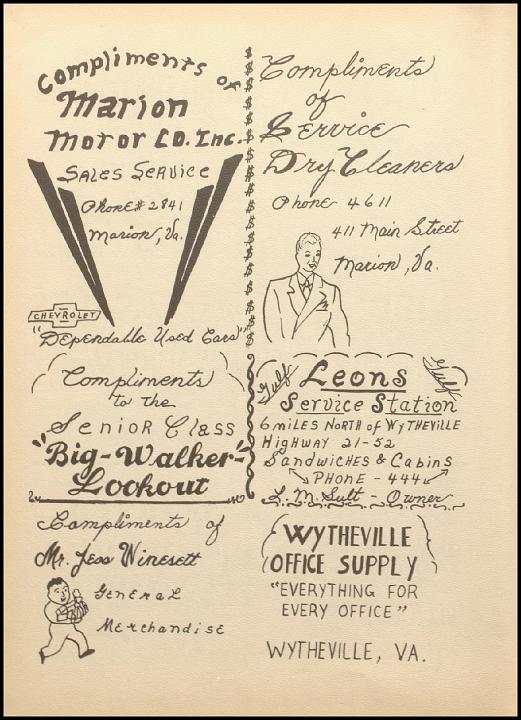 Compliments of
Marion
Motor CO. Inc.
SALES SERVICE
Phone# 2841
Marion, Va.
CHEVROLET
"Dependable Used Cars"
Compliments
of
Service
Dry Cleaners
Phone 4611
411 Main Street
Marion, Va.
Compliments
to the
Senior Class
"Big-Walker-
Lookout"
Gulf
Leons
Gulf
Service Station
6 miles North of Wytheville
Highway 21-52
Sandwiches & Cabins
PHONE - 444
L. M. Sult - Owner
Compliments of
Mr. Jess Winesett
General
Merchandise
WYTHEVILLE
OFFICE SUPPLY
"EVERYTHING FOR
EVERY OFFICE"
WYTHEVILLE, VA.